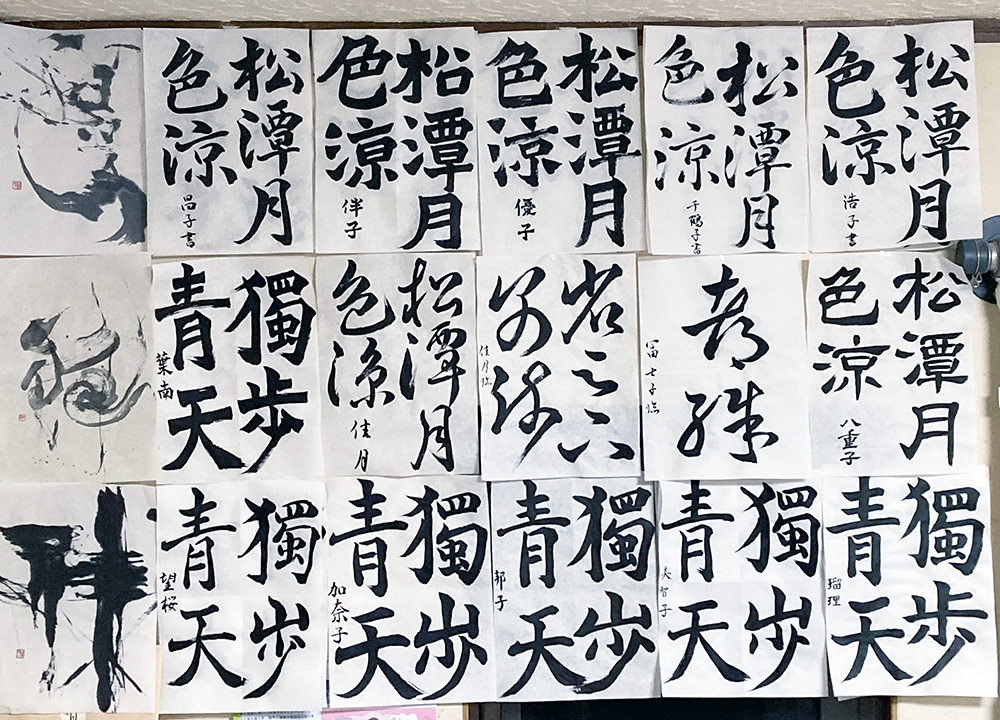 松潭月
色涼
昌子書
松潭月
色涼
伴子
松潭月
色涼
優子
松潭月
色涼
千鶴子書
松潭月
色涼
浩子書
獨歩
青天
葉南
松潭月
色涼
佳月
佳月臨
冨士子臨
松潭月
色涼
八重子
獨步
青天
望桜
獨步
青天
加奈子
獨步
青天
郁子
獨步
青天
美智子
獨歩
青天
瑠理